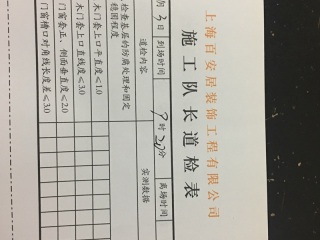 上海百安居装饰工程有限公司
施工队长道检表
3日 到场时间 9时20分 离场时间
道检内容 实测数据
检查基层的防腐处理和固定
稳固程度
木门套上口平直度≤1.0
木门套上口直线度≤3.0
门窗套正、侧面垂直度≤2.0
门窗槽口对角线长度差≤3.0